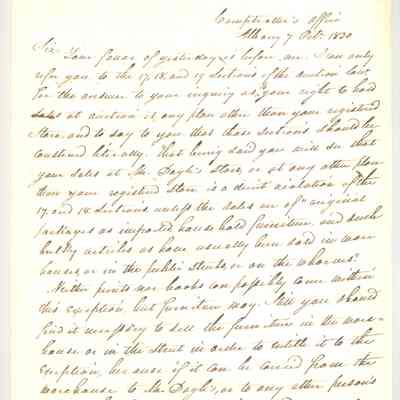 Comptroller's Office
Albany 7 Oct. 1830
Sir,
Your favor of yesterday is before me. I can only
refer you to the 17, 18, and 19 Sections of the auction law,
for the answer to your inquiry as to your right to hold
sales at auction at any place other than your registered
store, and to say to you that those sections should be
construed literally. That being said you will see that
your sales at Mr. Doyle's Store, or at any other place
than your registered store is a direct violation of the
17. and 18. Sections unless the sales are of original
packages or imported household furniture, and such
bulky articles as have usually been sold in ware
houses, or in the public streets, or on the wharves.
Neither prints nor books can possibly come within
this exception but furniture may. Still you should
find it necessary to sell the furniture in the ware-
house or in the street in order to entitle it to the
exception, because if it can be carried from the
warehouse to Mr. Doyle's, or to any other person's